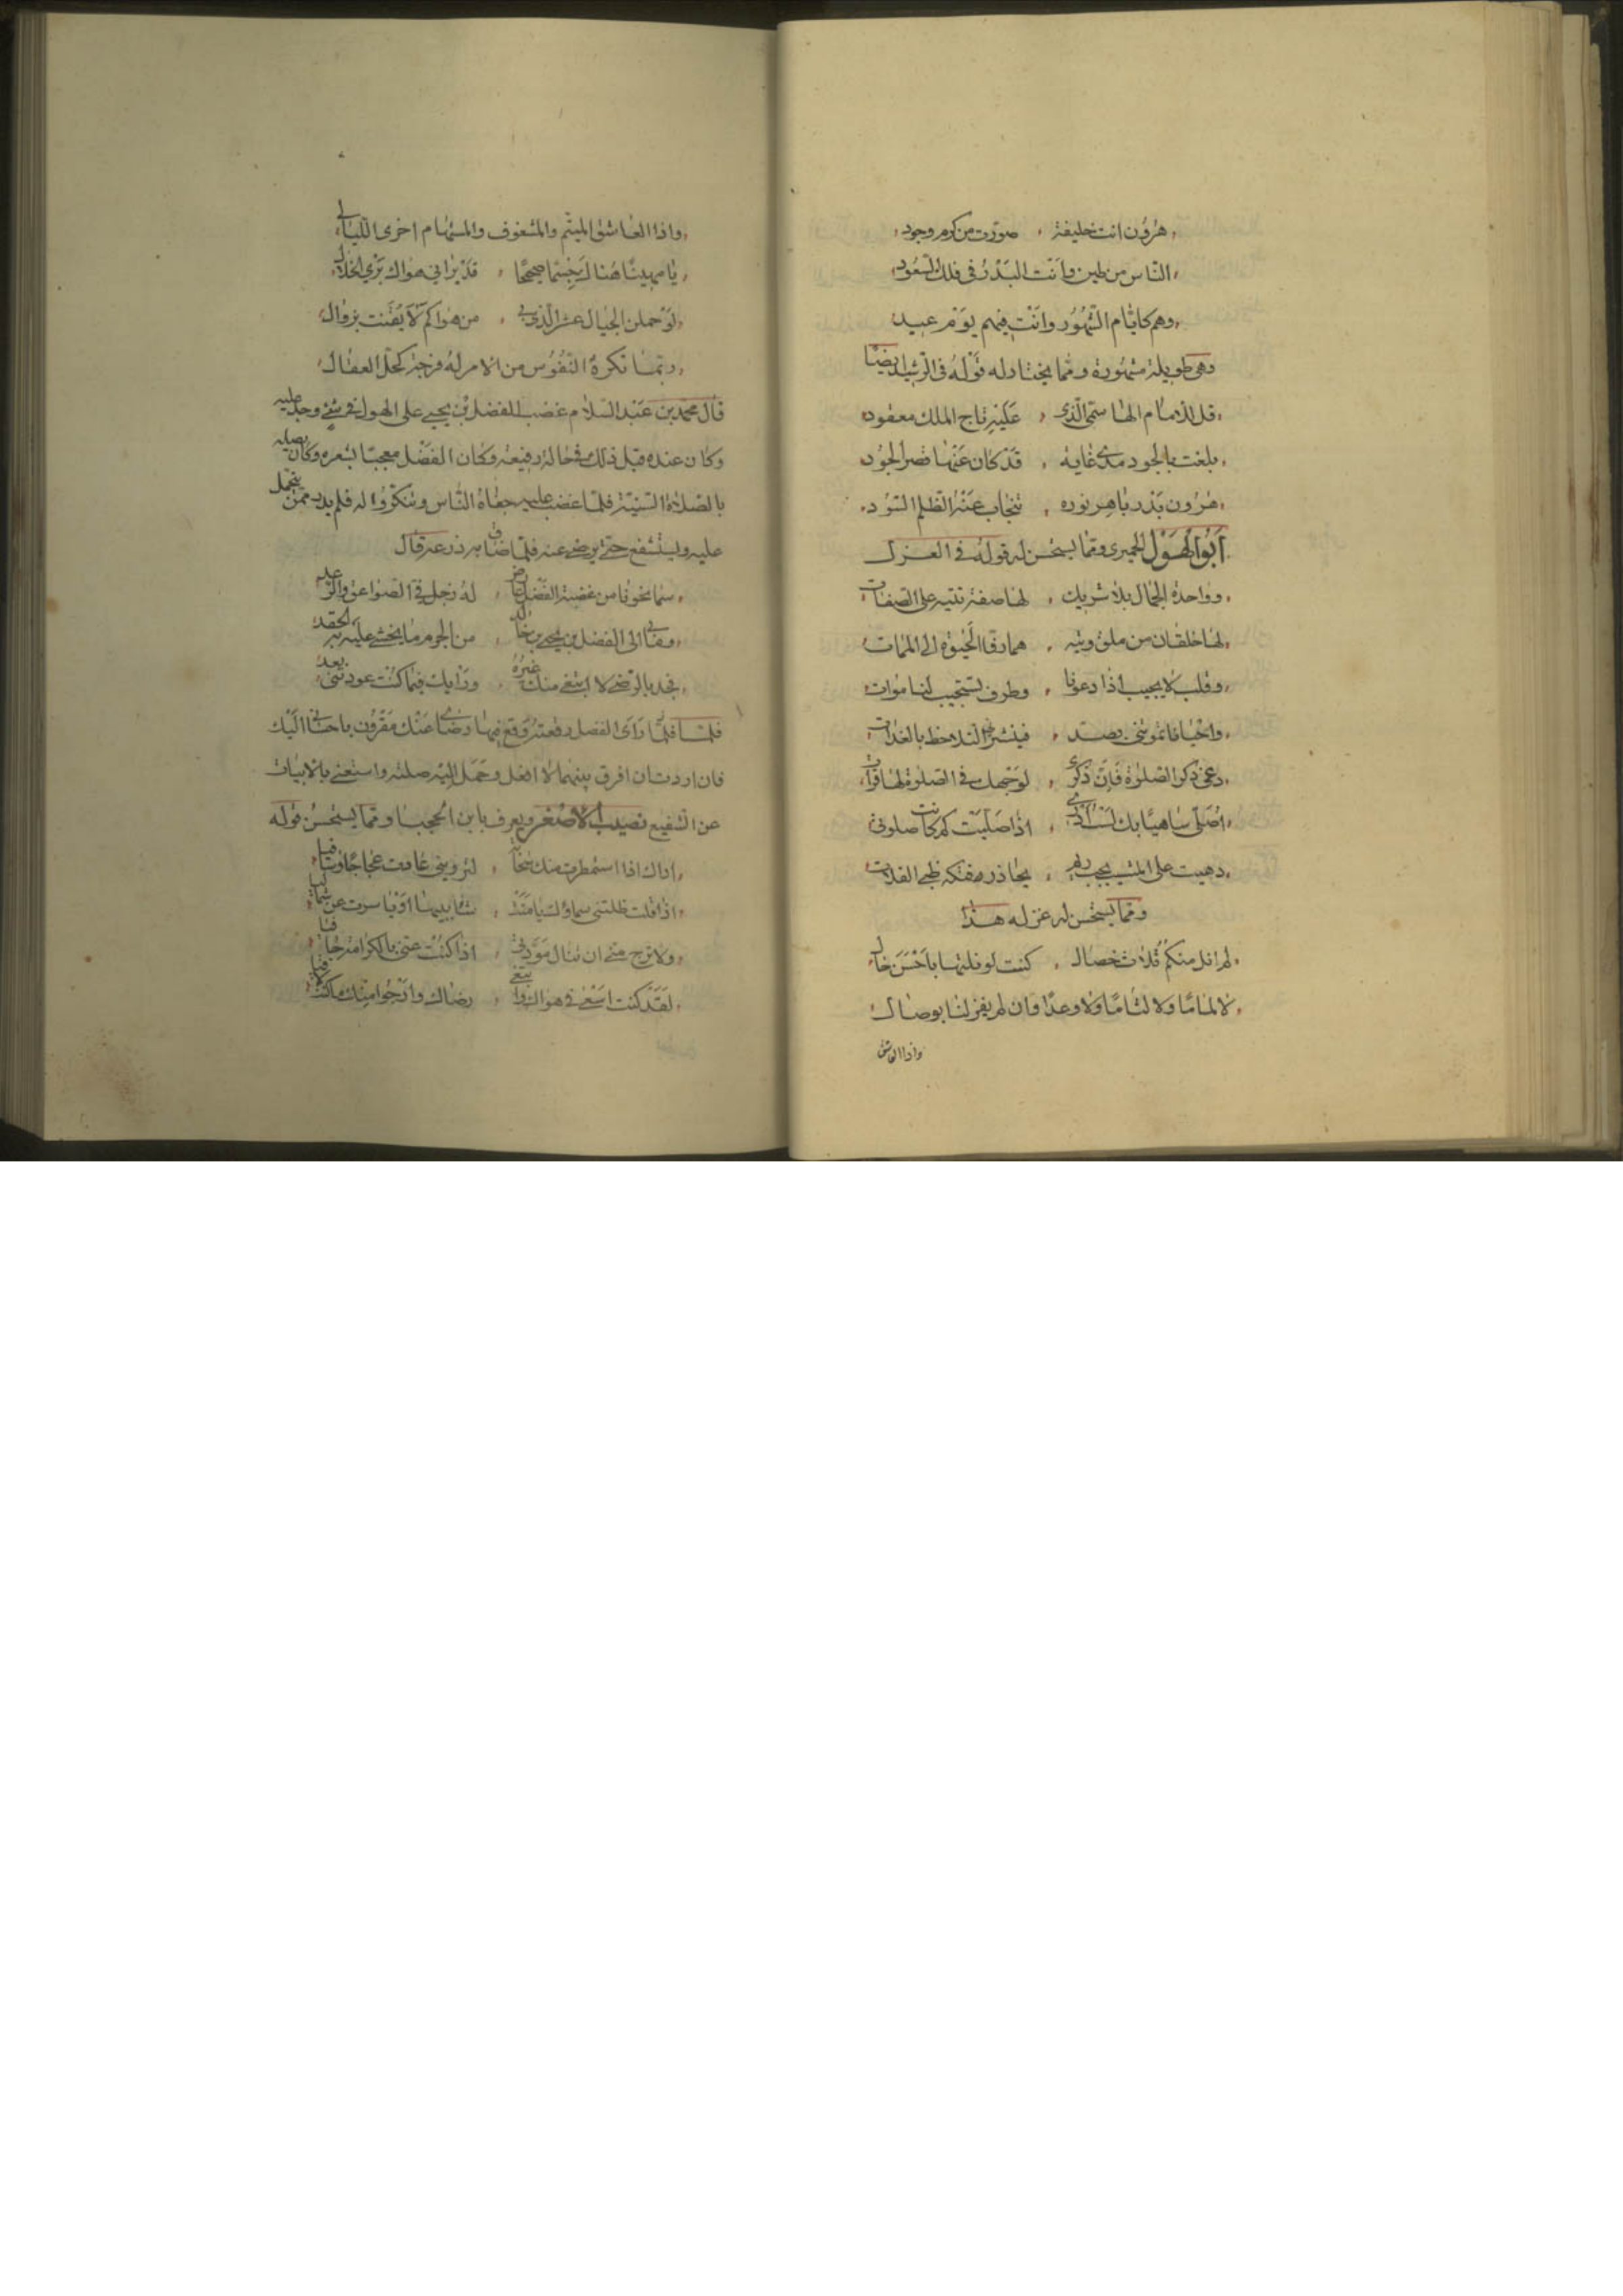 هٰرُون انت خليفة ، صوّرت من كرم وجود
الناس من طين وأنت البَدْرُ فى فلك السعُود
وهم كايّام الشهُور وانت فيهم يَوْمُ عيد
وهى طويلة مشهُورة وممّا يختار له قَوْلُهُ فى الرشيد ايضًا
قل للامام الهاشمىّ الذى ، عَلَيْهِ تاج الملك معقود
بلغت بالجود مدى غاية ، قَدْ كان عَنْها قصر الجُود
هٰرُون بَدْر باهر نوره ، تنجاب عَنْهُ الظلم السُود
أبُوالهَوْل الحميرى وممّا يستحسن له قولهُ فى الغزل
وواحدة الجمال بلا شريك ، لها صفة تتيه على الصفات
لها خلقان من ملق وتيه ، هما رقّا الحيٰوة الى الممات
وقلب لا يجيب اذا دعونا ، وطرف يستجيب لنا موات
واحْيا فاتموتنى بصد ، فينشرنى التلاحظ بالغدات
دعى ذكر الصلوة فَإنّ ذكرى ، لوَجهك فى الصلوة لها فوات
اصَلّى ساهيًا بك لست ادرى ، اذا صَلّيت كم كانت صلوتى
وممّا يستحسن له غزله هذا
لم انل منكم ثلاث خصال ، كنت لو نلتها بأحْسَن حال
لا لمامًا ولا لثامًا ولا وعدًا وان لم يفز لنا بوصال
واذا العاشق
واذا العاشق المتيّم والمشغوف والمستهام اخرى الليالى
يا مهينًا هُناك جسمًا صحيحًا ، قَدْ براه فى هواك بَرْى الخلال
لَوْ حملن الجبال عشر الذى بى ، من هواكم لَآيْقَنت بزوال
ربّما تكرهُ النفُوس من الامر لهُ فرجة كحلّ العقال
قال محمّد بن عَبْد السلام غضب الفضل بْن يحيى على الهول فى شىء وجد عليه
وكان عنده قبل ذلك فى حالة رفيعة وكان الفَضْل معجبًا بشعره وكان يصله
بالصلاة السَنيّة فلمّا غضب عليه جفاهُ النّاس وتنكّرُوا له فلم يدر ممّن يتحمّل
عليه ويستشفع حتى يرضى عنه فلمّا ضاق به ذرعه قال
سما نحونا من غضبة الفَضْل عارض ، لهُ زجل فيه الصواعق والرّعد
ومالى الى الفضل بن يحيى بن خالد ، من الجرم ما يخشى علَيّ به الحقد
فجد بالرّضى لا ابتغى منك غيرهُ ، ورأيك فيما كنت عودتنى بعدُ
فلمّا رَأى الفضل رقعتهُ وَقّع فيها رضاى عَنْك مَقْرُون باحسانى الَيْك
فان اردت ان افرق بينهما لا افعل وحَمَل اليه صلته واستغنى بالابيات
عن الشفيع نصيب الأصْغر ويعرف بابن الحجبا وممّا يستحسَنُ قوله
اذا قلت ظلتنى سماؤك يامَنَتْ ، شآبيبها اوْ ياسرت عن شماليا
ولا ترج منّى ان تنال مَوَدّتى ، اذا كُنْت عنّى بالكرامة جافيا
لقَدْ كنت اسْعٰى فى هواك وابتغى ، رضاك وارْجُوا منك ما كنت لاقيا